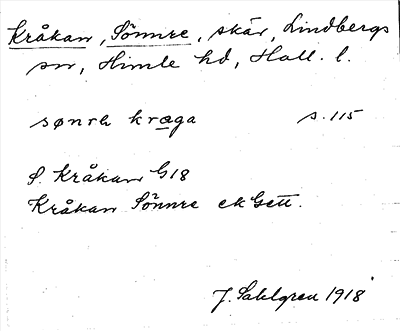 Kråkan, Sönnre, skär, Lindbergs
sn, Himle hd, Hall. l.
sønrə kræga s. 115
S. Kråkan G18
Kråkan Sönnre ek Gett.
J. Sahlgren 1918